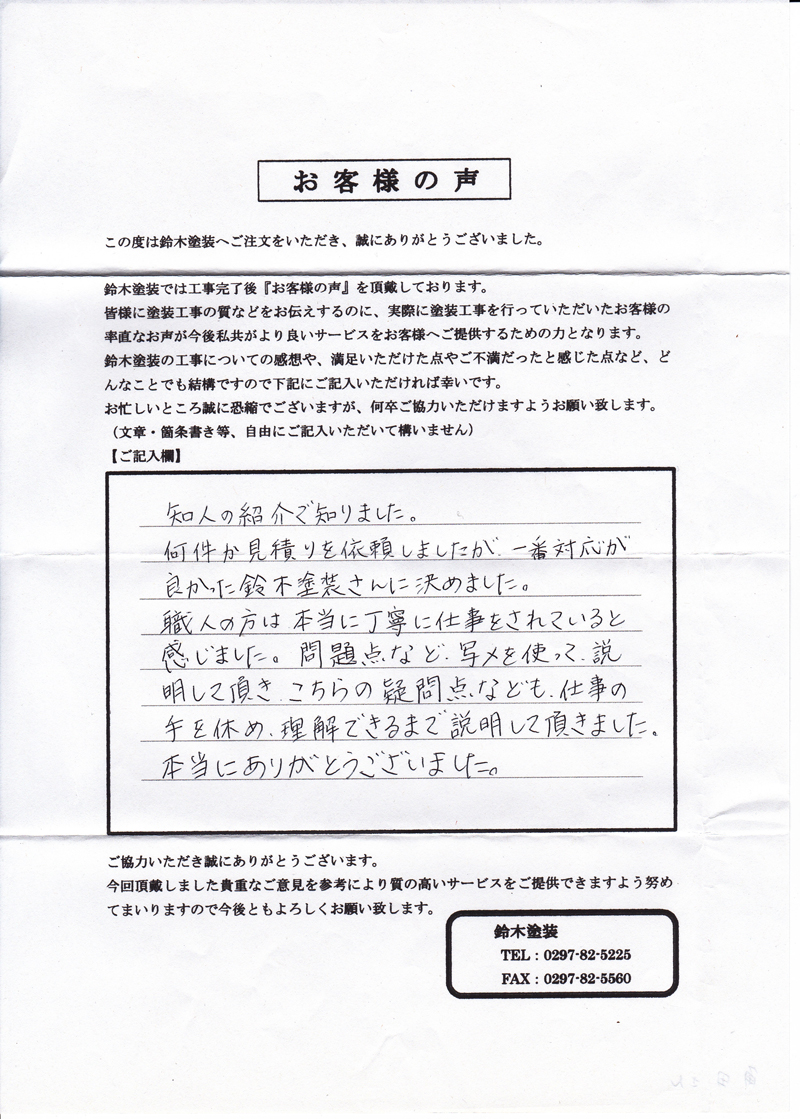 お客様の声
この度は鈴木塗装へご注文をいただき、誠にありがとうございました。
鈴木塗装では工事完了後『お客様の声』を頂戴しております。
皆様に塗装工事の質などをお伝えするのに、実際に塗装工事を行っていただいたお客様の
率直なお声が今後私共がより良いサービスをお客様へご提供するための力となります。
鈴木塗装の工事についての感想や、満足いただけた点やご不満だったと感じた点など、ど
んなことでも結構ですので下記にご記入いただければ幸いです。
お忙しいところ誠に恐縮でございますが、何卒ご協力いただけますようお願い致します。
（文章・箇条書き等、自由にご記入いただいて構いません）
【ご記入欄】
知人の紹介で知りました。
何件か見積りを依頼しましたが、一番対応が
良かった鈴木塗装さんに決めました。
職人の方は本当に丁寧に仕事をされていると
感じました。問題点など、写メを使って、説
明して頂き、こちらの疑問点なども、仕事の
手を休め、理解できるまで説明して頂きました。
本当にありがとうございました。
ご協力いただき誠にありがとうございます。
今回頂戴しました貴重なご意見を参考により質の高いサービスをご提供できますよう努め
てまいりますので今後ともよろしくお願い致します。
鈴木塗装
TEL：0297-82-5225
FAX：0297-82-5560